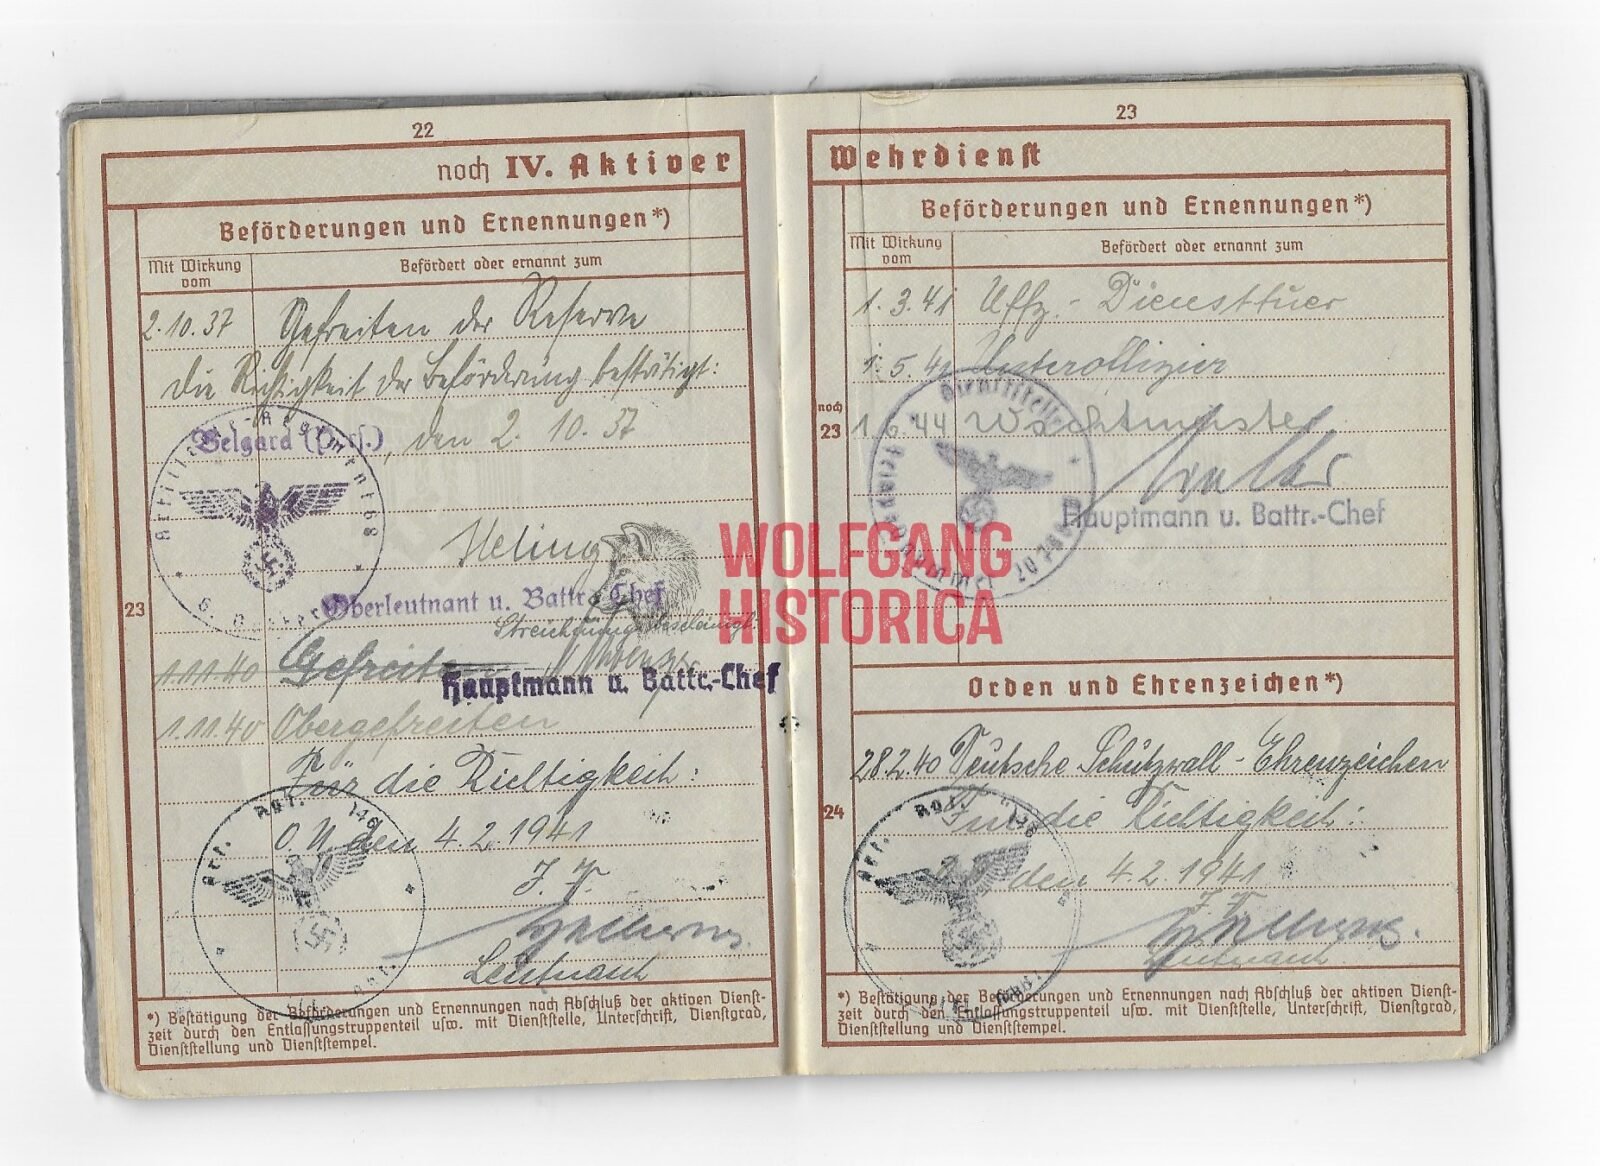 22
noch IV. Aktiver
Beförderungen und Ernennungen*)
Mit Wirkung vom
Befördert oder ernannt zum
2.10.37 Gefreiten der Reserve
Die Richtigkeit der Beförderung bestätigt:
Belgard (Pers.), den 2. 10. 37
Artillerie-Regiment 68
Heling
Oberleutnant u. Battr.-Chef
23
Streichung bescheinigt:
1.11.40 Gefreiten
Hauptmann u. Battr.-Chef
1.11.40 Obergefreiten
Für die Richtigkeit:
O.U. den 4.2.1941
Art. Rgt. 146
Leutnant
*) Bestätigung der Beförderungen und Ernennungen nach Abschluß der aktiven Dienst-
zeit durch den Entlassungstruppenteil usw. mit Dienststelle, Unterschrift, Dienstgrad,
Dienststellung und Dienststempel.
23
Wehrdienst
Beförderungen und Ernennungen*)
Mit Wirkung vom
Befördert oder ernannt zum
1.3.41 Uffz.-Diensttuer
1.5.41 Unteroffizier
noch 23
1.6.44 Wachtmeister
Dienststelle Feldpostnummer
Hauptmann u. Battr.-Chef
WOLFGANG
HISTORICA
Orden und Ehrenzeichen*)
28.2.40 Deutsche Schutzwall-Ehrenzeichen
24
Für die Richtigkeit:
den 4.2.1941
Art. Rgt. 146
Leutnant
*) Bestätigung der Beförderungen und Ernennungen nach Abschluß der aktiven Dienst-
zeit durch den Entlassungstruppenteil usw. mit Dienststelle, Unterschrift, Dienstgrad,
Dienststellung und Dienststempel.